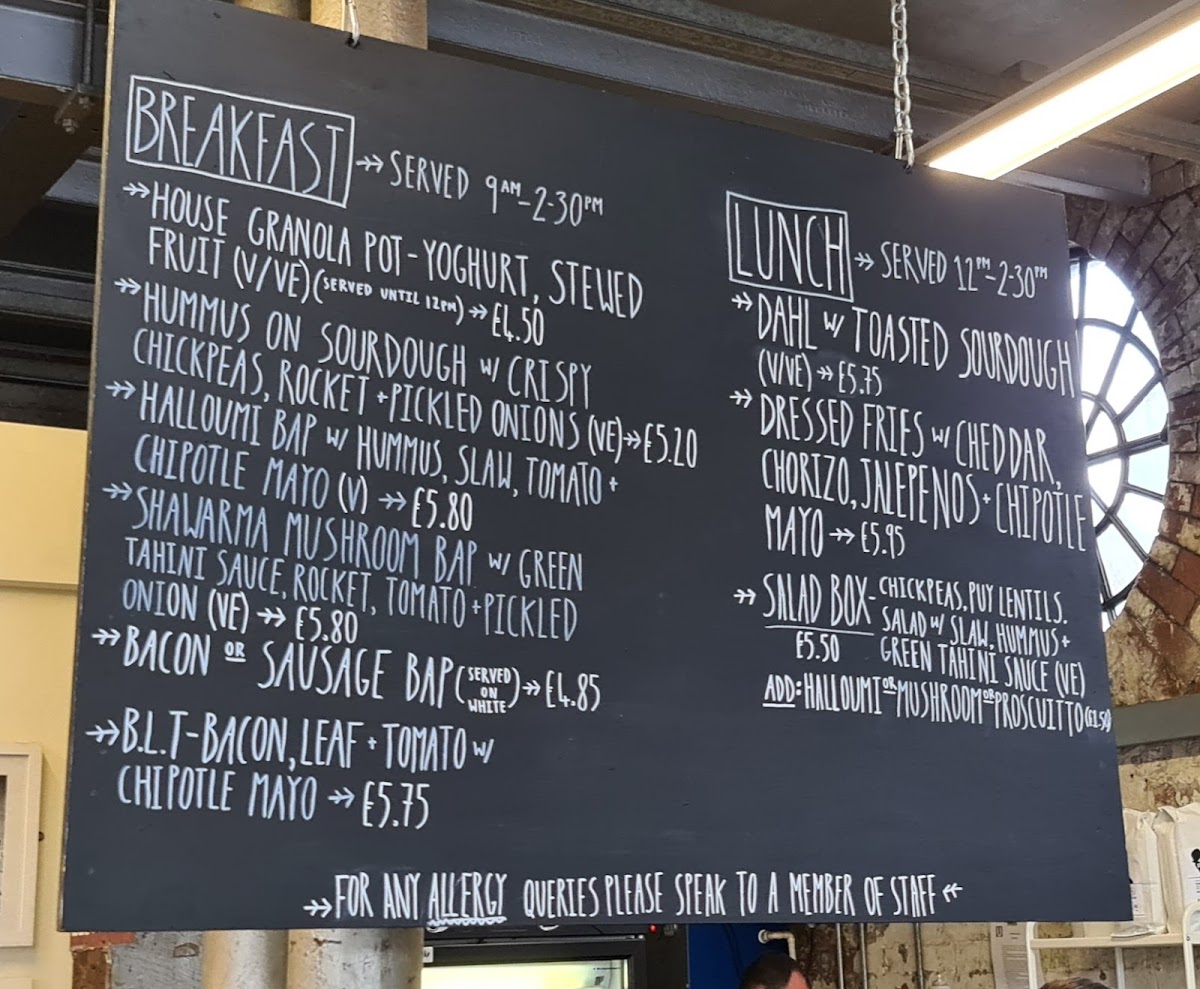 BREAKFAST → SERVED 9AM-2-30PM
→ HOUSE GRANOLA POT - YOGHURT, STEWED
FRUIT (V/VE) (SERVED UNTIL 12PM) → £4.50
→ HUMMUS ON SOURDOUGH W/ CRISPY
CHICKPEAS, ROCKET + PICKLED ONIONS (VE) → £5.20
→ HALLOUMI BAP W/ HUMMUS, SLAW, TOMATO +
CHIPOTLE MAYO (V) → £5.80
→ SHAWARMA MUSHROOM BAP W/ GREEN
TAHINI SAUCE, ROCKET, TOMATO + PICKLED
ONION (VE) → £5.80
→ BACON OR SAUSAGE BAP (SERVED ON WHITE) → £4.85
→ B.L.T - BACON, LEAF + TOMATO W/
CHIPOTLE MAYO → £5.75
LUNCH → SERVED 12PM-2-30PM
→ DAHL W/ TOASTED SOURDOUGH
(V/VE) → £5.75
→ DRESSED FRIES W/ CHEDDAR,
CHORIZO, JALEPENOS + CHIPOTLE
MAYO → £5.95
→ SALAD BOX - CHICKPEAS, PUY LENTILS.
£5.50 SALAD W/ SLAW, HUMMUS +
GREEN TAHINI SAUCE (VE)
ADD: HALLOUMI OR MUSHROOM OR PROSCUITTO (£1.50)
→ FOR ANY ALLERGY QUERIES PLEASE SPEAK TO A MEMBER OF STAFF ←